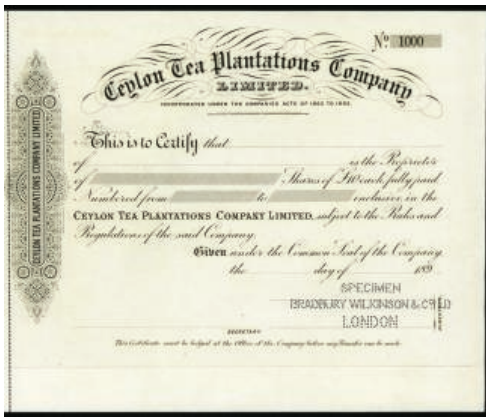 Nº 1000
Ceylon Tea Plantations Company
LIMITED.
INCORPORATED UNDER THE COMPANIES ACTS OF 1862 TO 1890.
This is to Certify that
of is the Proprietor
of Shares of £10 each, fully paid
Numbered from to inclusive, in the
CEYLON TEA PLANTATIONS COMPANY LIMITED, subject to the Rules and
Regulations of the said Company.
Given under the Common Seal of the Company,
the day of 189
SPECIMEN
BRADBURY WILKINSON & Cº LD
LONDON
SECRETARY
This Certificate must be lodged at the Office of the Company before any Transfer can be made
CEYLON TEA PLANTATIONS COMPANY LIMITED